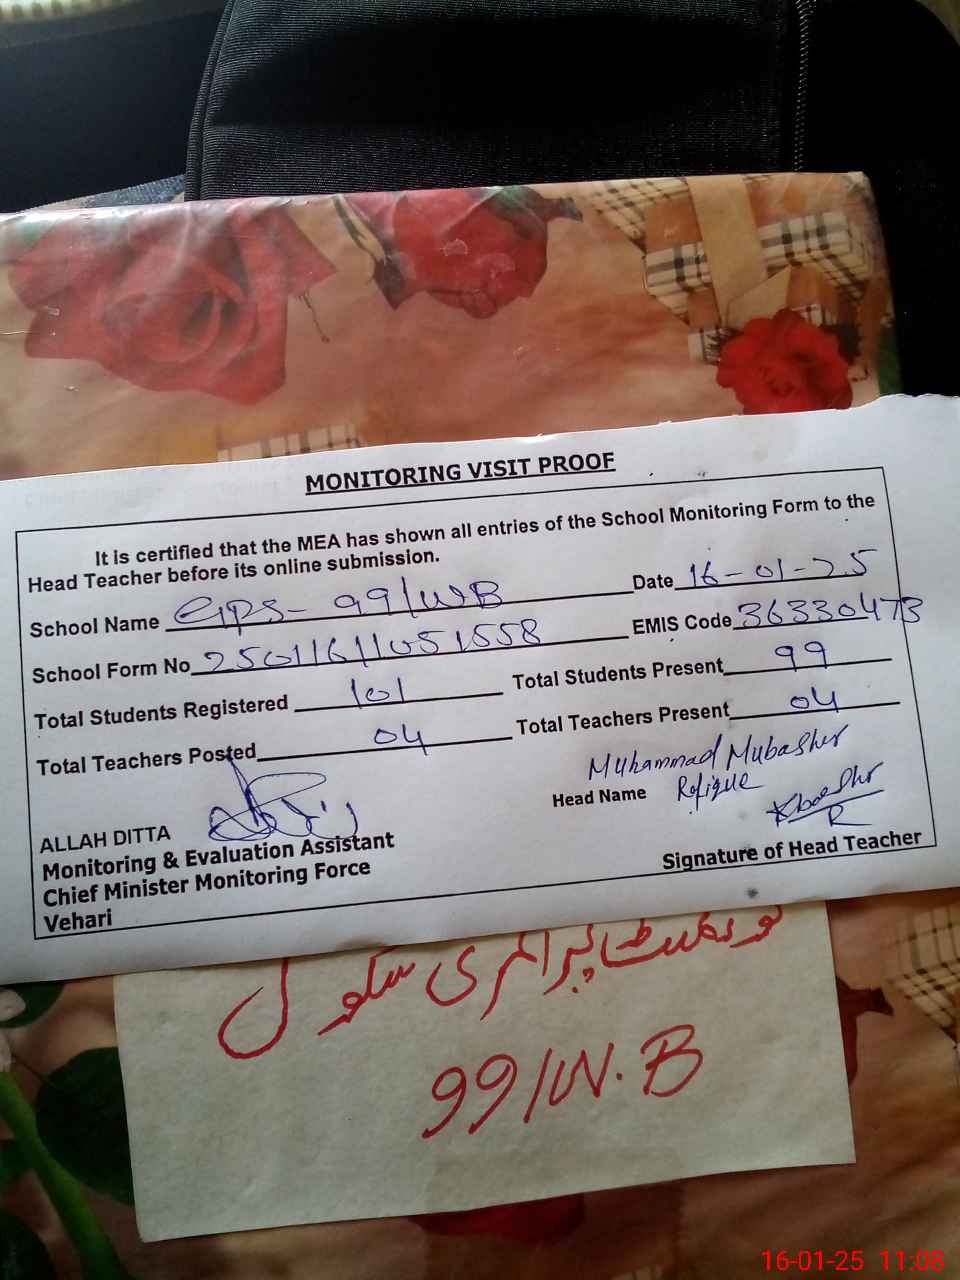 MONITORING VISIT PROOF
It is certified that the MEA has shown all entries of the School Monitoring Form to the
Head Teacher before its online submission.
School Name GPS- 99/WB Date 16-01-25
School Form No 25011611051558 EMIS Code 36330473
Total Students Registered 101 Total Students Present 99
Total Teachers Posted 04 Total Teachers Present 04
Head Name Muhammad Mubasher
Rafique
ALLAH DITTA
Monitoring & Evaluation Assistant
Chief Minister Monitoring Force
Vehari
Signature of Head Teacher
گورنمنٹ پرائمری سکول
99/W.B
16-01-25 11:08